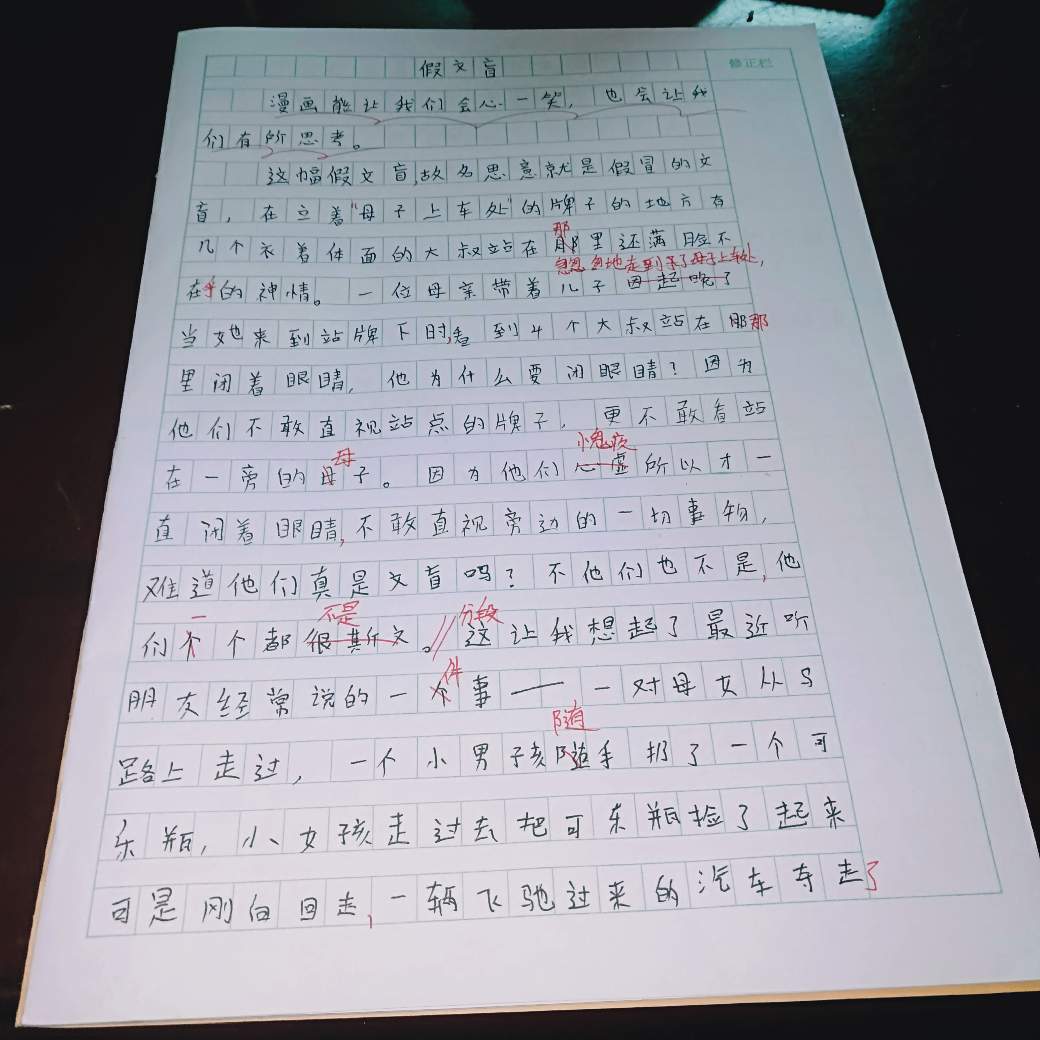 修正栏
假文盲
漫画能让我们会心一笑，也会让我
们有所思考。
这幅假文盲,故名思意就是假冒的文
盲，在立着"母子上车处"的牌子的地方有
那
几个衣着体面的大叔站在那里还满脸不
忽忽地走到了母子上车处,
在乎的神情。一位母亲带着儿子因起晚了
当她来到站牌下时,看到4个大叔站在那那
里闭着眼睛，他为什么要闭眼睛？因为
他们不敢直视站点的牌子，更不敢看站
母 愧疚
在一旁的母子。因为他们心虚所以才一
直闭着眼睛,不敢直视旁边的一切事物，
难道他们真是文盲吗？不他们也不是,他
一 不是 分段
们个个都很斯文。//这让我想起了最近听
件
朋友经常说的一个事——一对母女从马
随
路上走过，一个小男孩随手扔了一个可
乐瓶，小女孩走过去把可乐瓶捡了起来
可是刚向回走,一辆飞驰过来的汽车夺走了